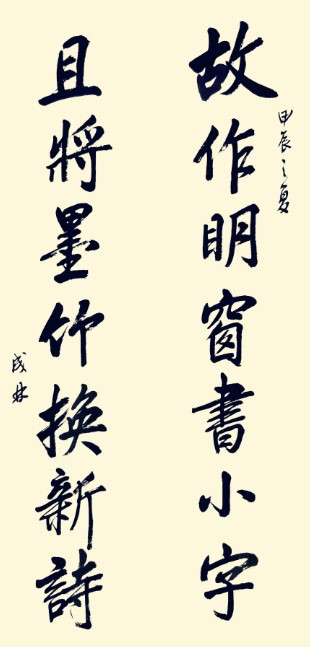 故作明窗書小字
甲辰之夏
且將墨竹換新詩
成林